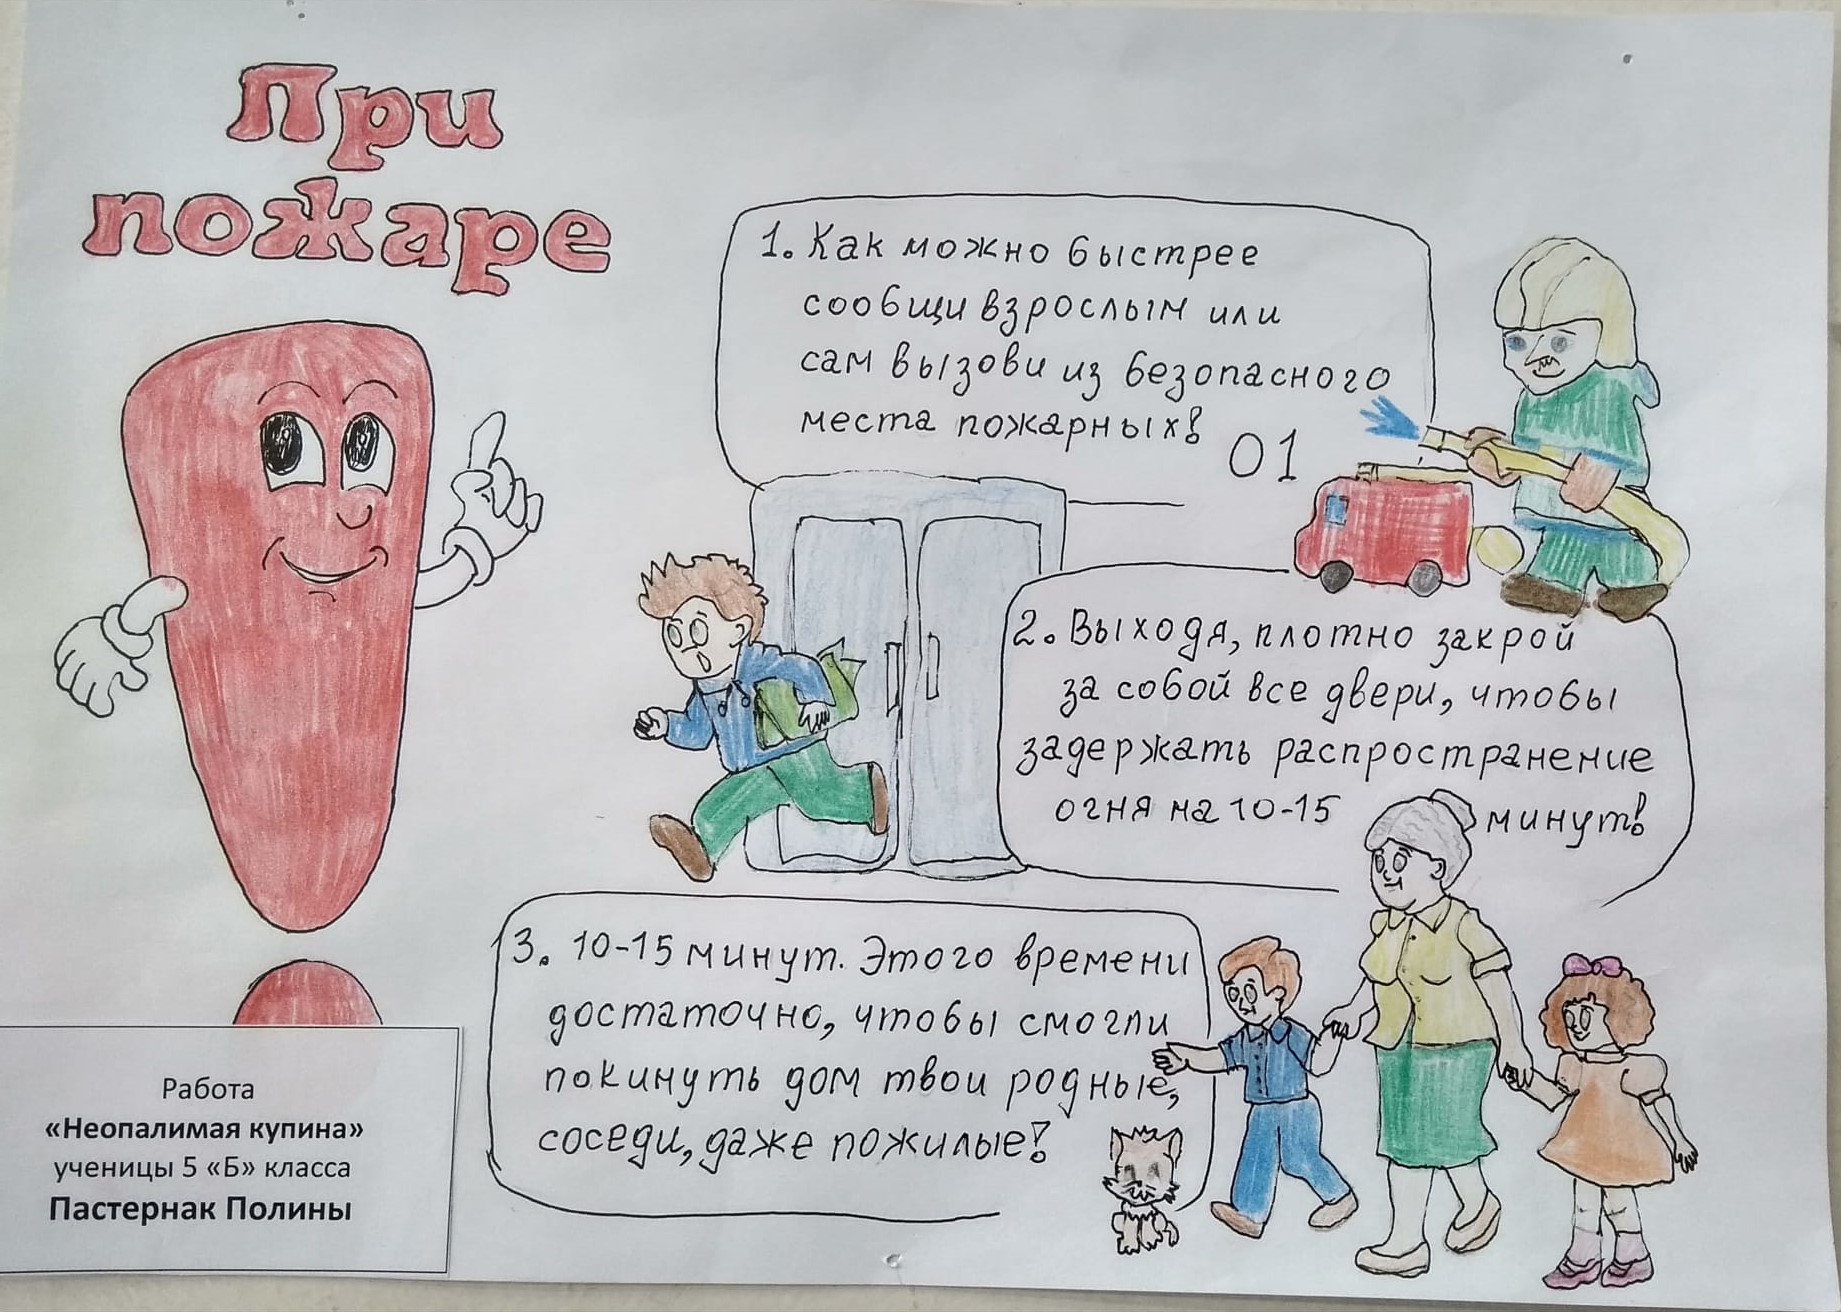 При
пожаре
1. Как можно быстрее
сообщи взрослым или
сам вызови из безопасного
места пожарных!
01
2. Выходя, плотно закрой
за собой все двери, чтобы
задержать распространение
огня на 10-15 минут!
3. 10-15 минут. Этого времени
достаточно, чтобы смогли
покинуть дом твои родные,
соседи, даже пожилые!
Работа
«Неопалимая купина»
ученицы 5 «Б» класса
Пастернак Полины